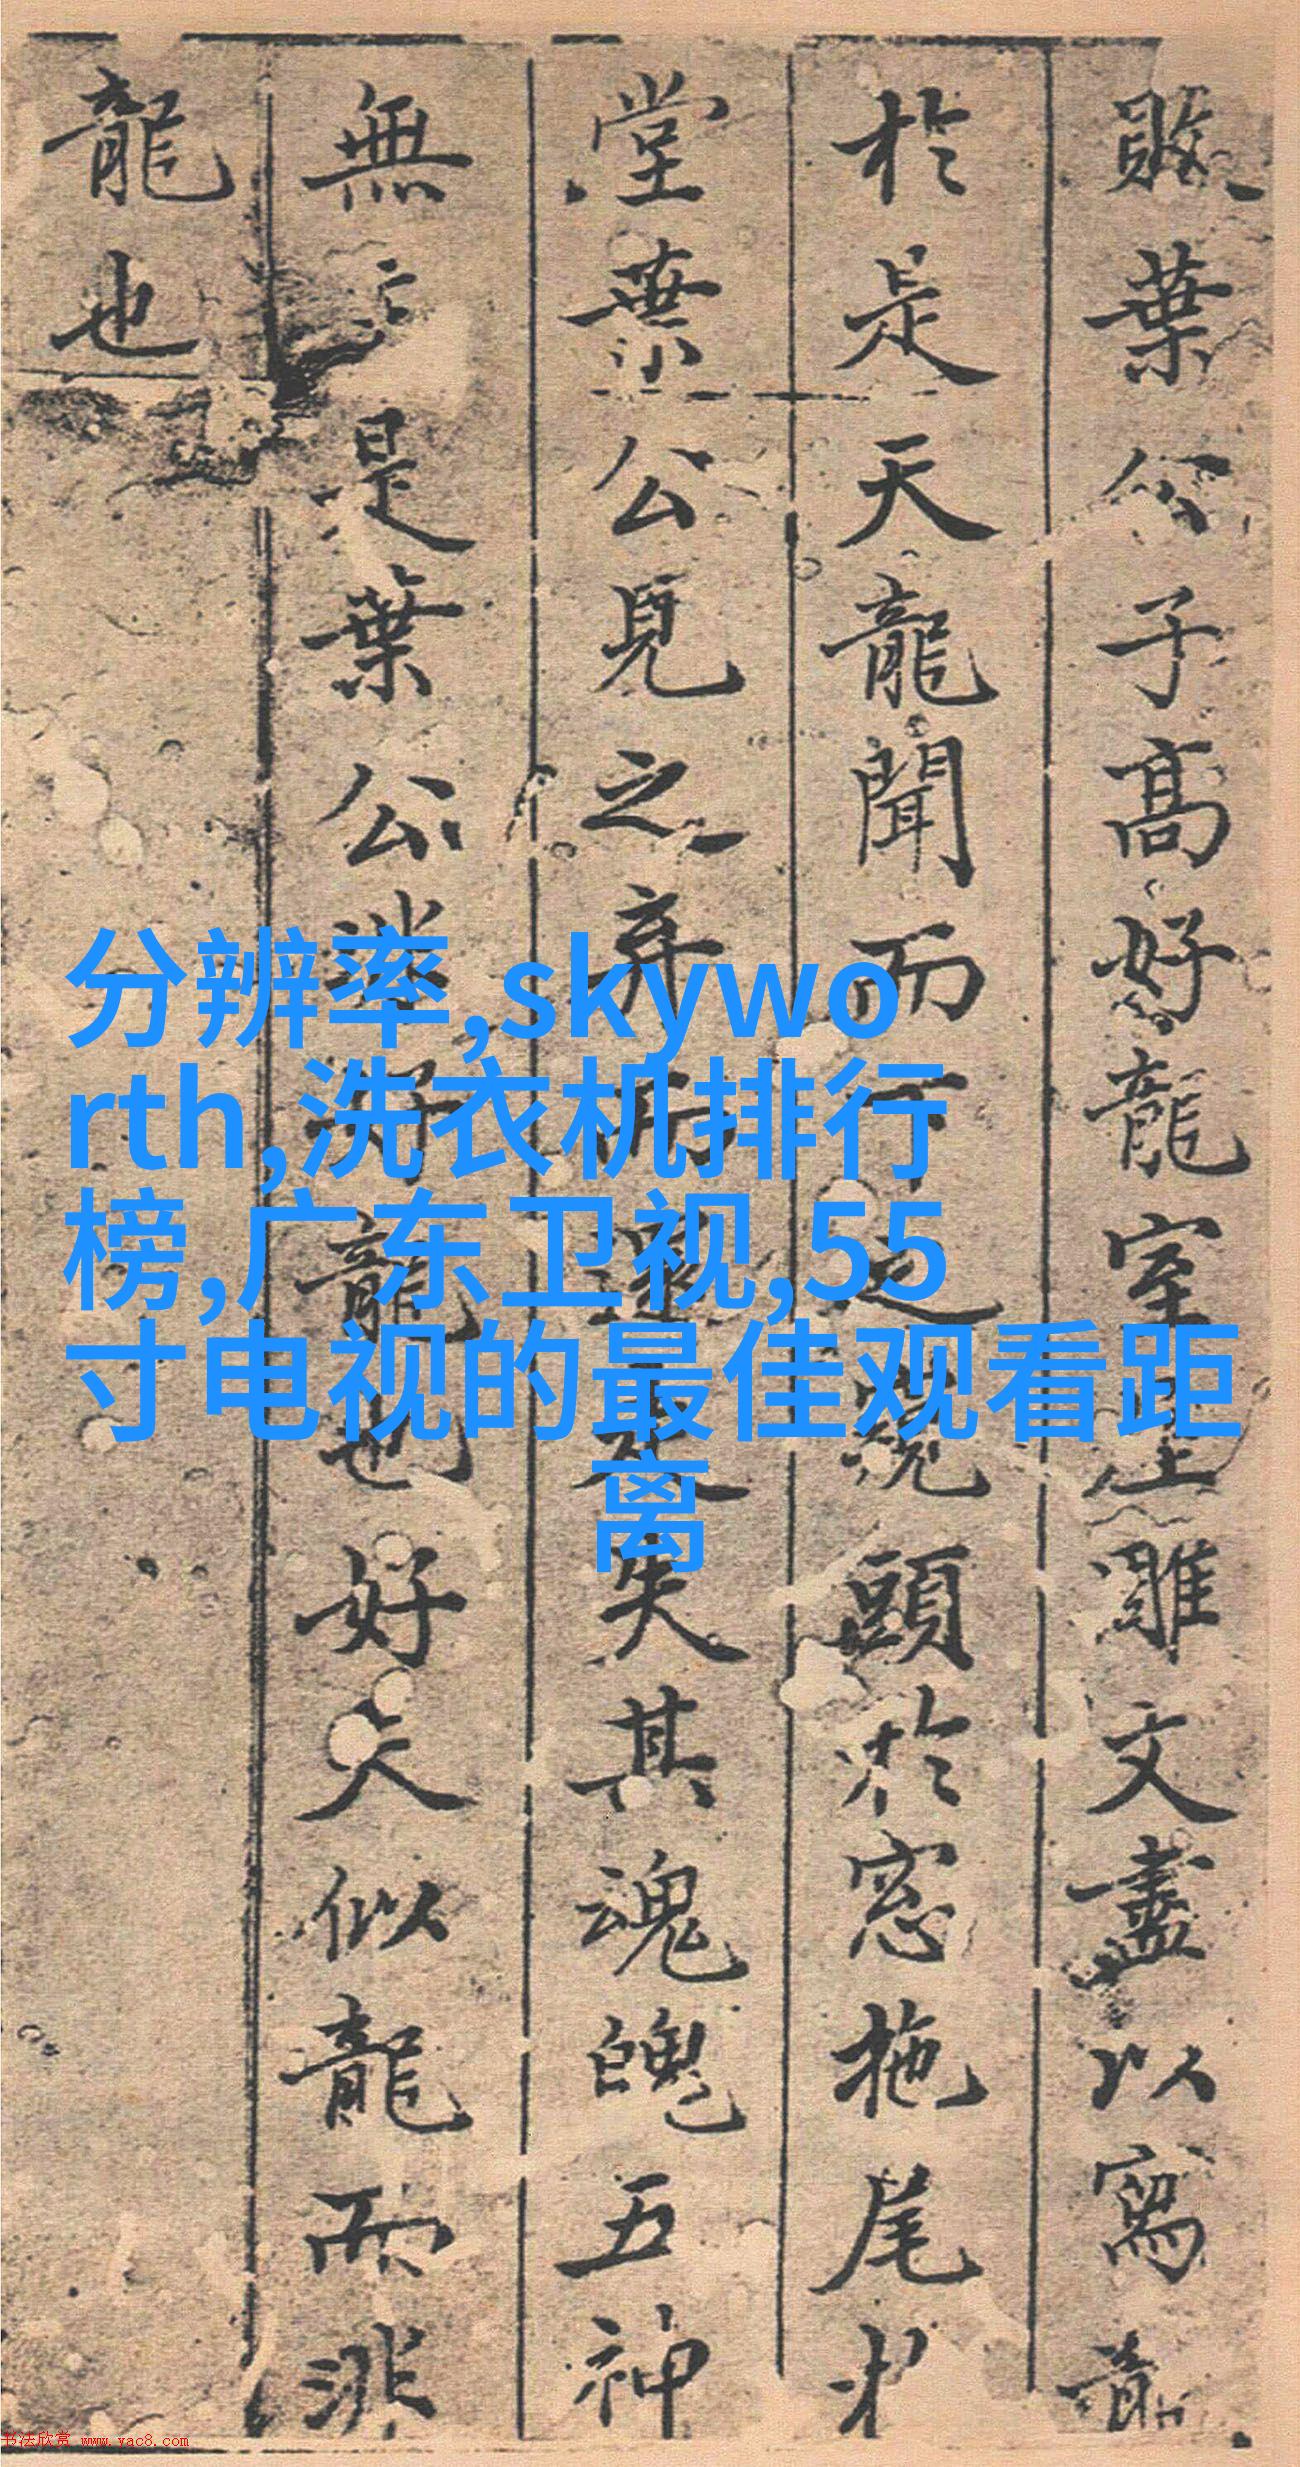 敗葉公子高好龍室屋雕文盡以寫龍
於是天龍聞而下之窺頭於窓拖尾
堂葉公見之弃而還走失其魂魄五神
無主是葉公非好龍也好夫似龍而非
龍也
分辨率,skywo
rth,洗衣机排行
榜,广东卫视,55
寸电视的最佳观看距
离
书法欣赏 www.yac8.com